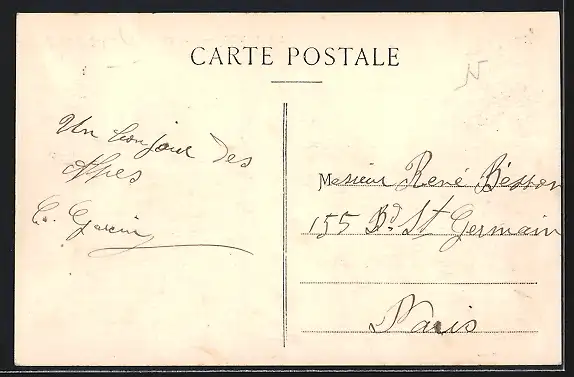 CARTE POSTALE
Un bonjour des
Alpes
Monsieur René Besson
155 Bd. St Germain
Paris